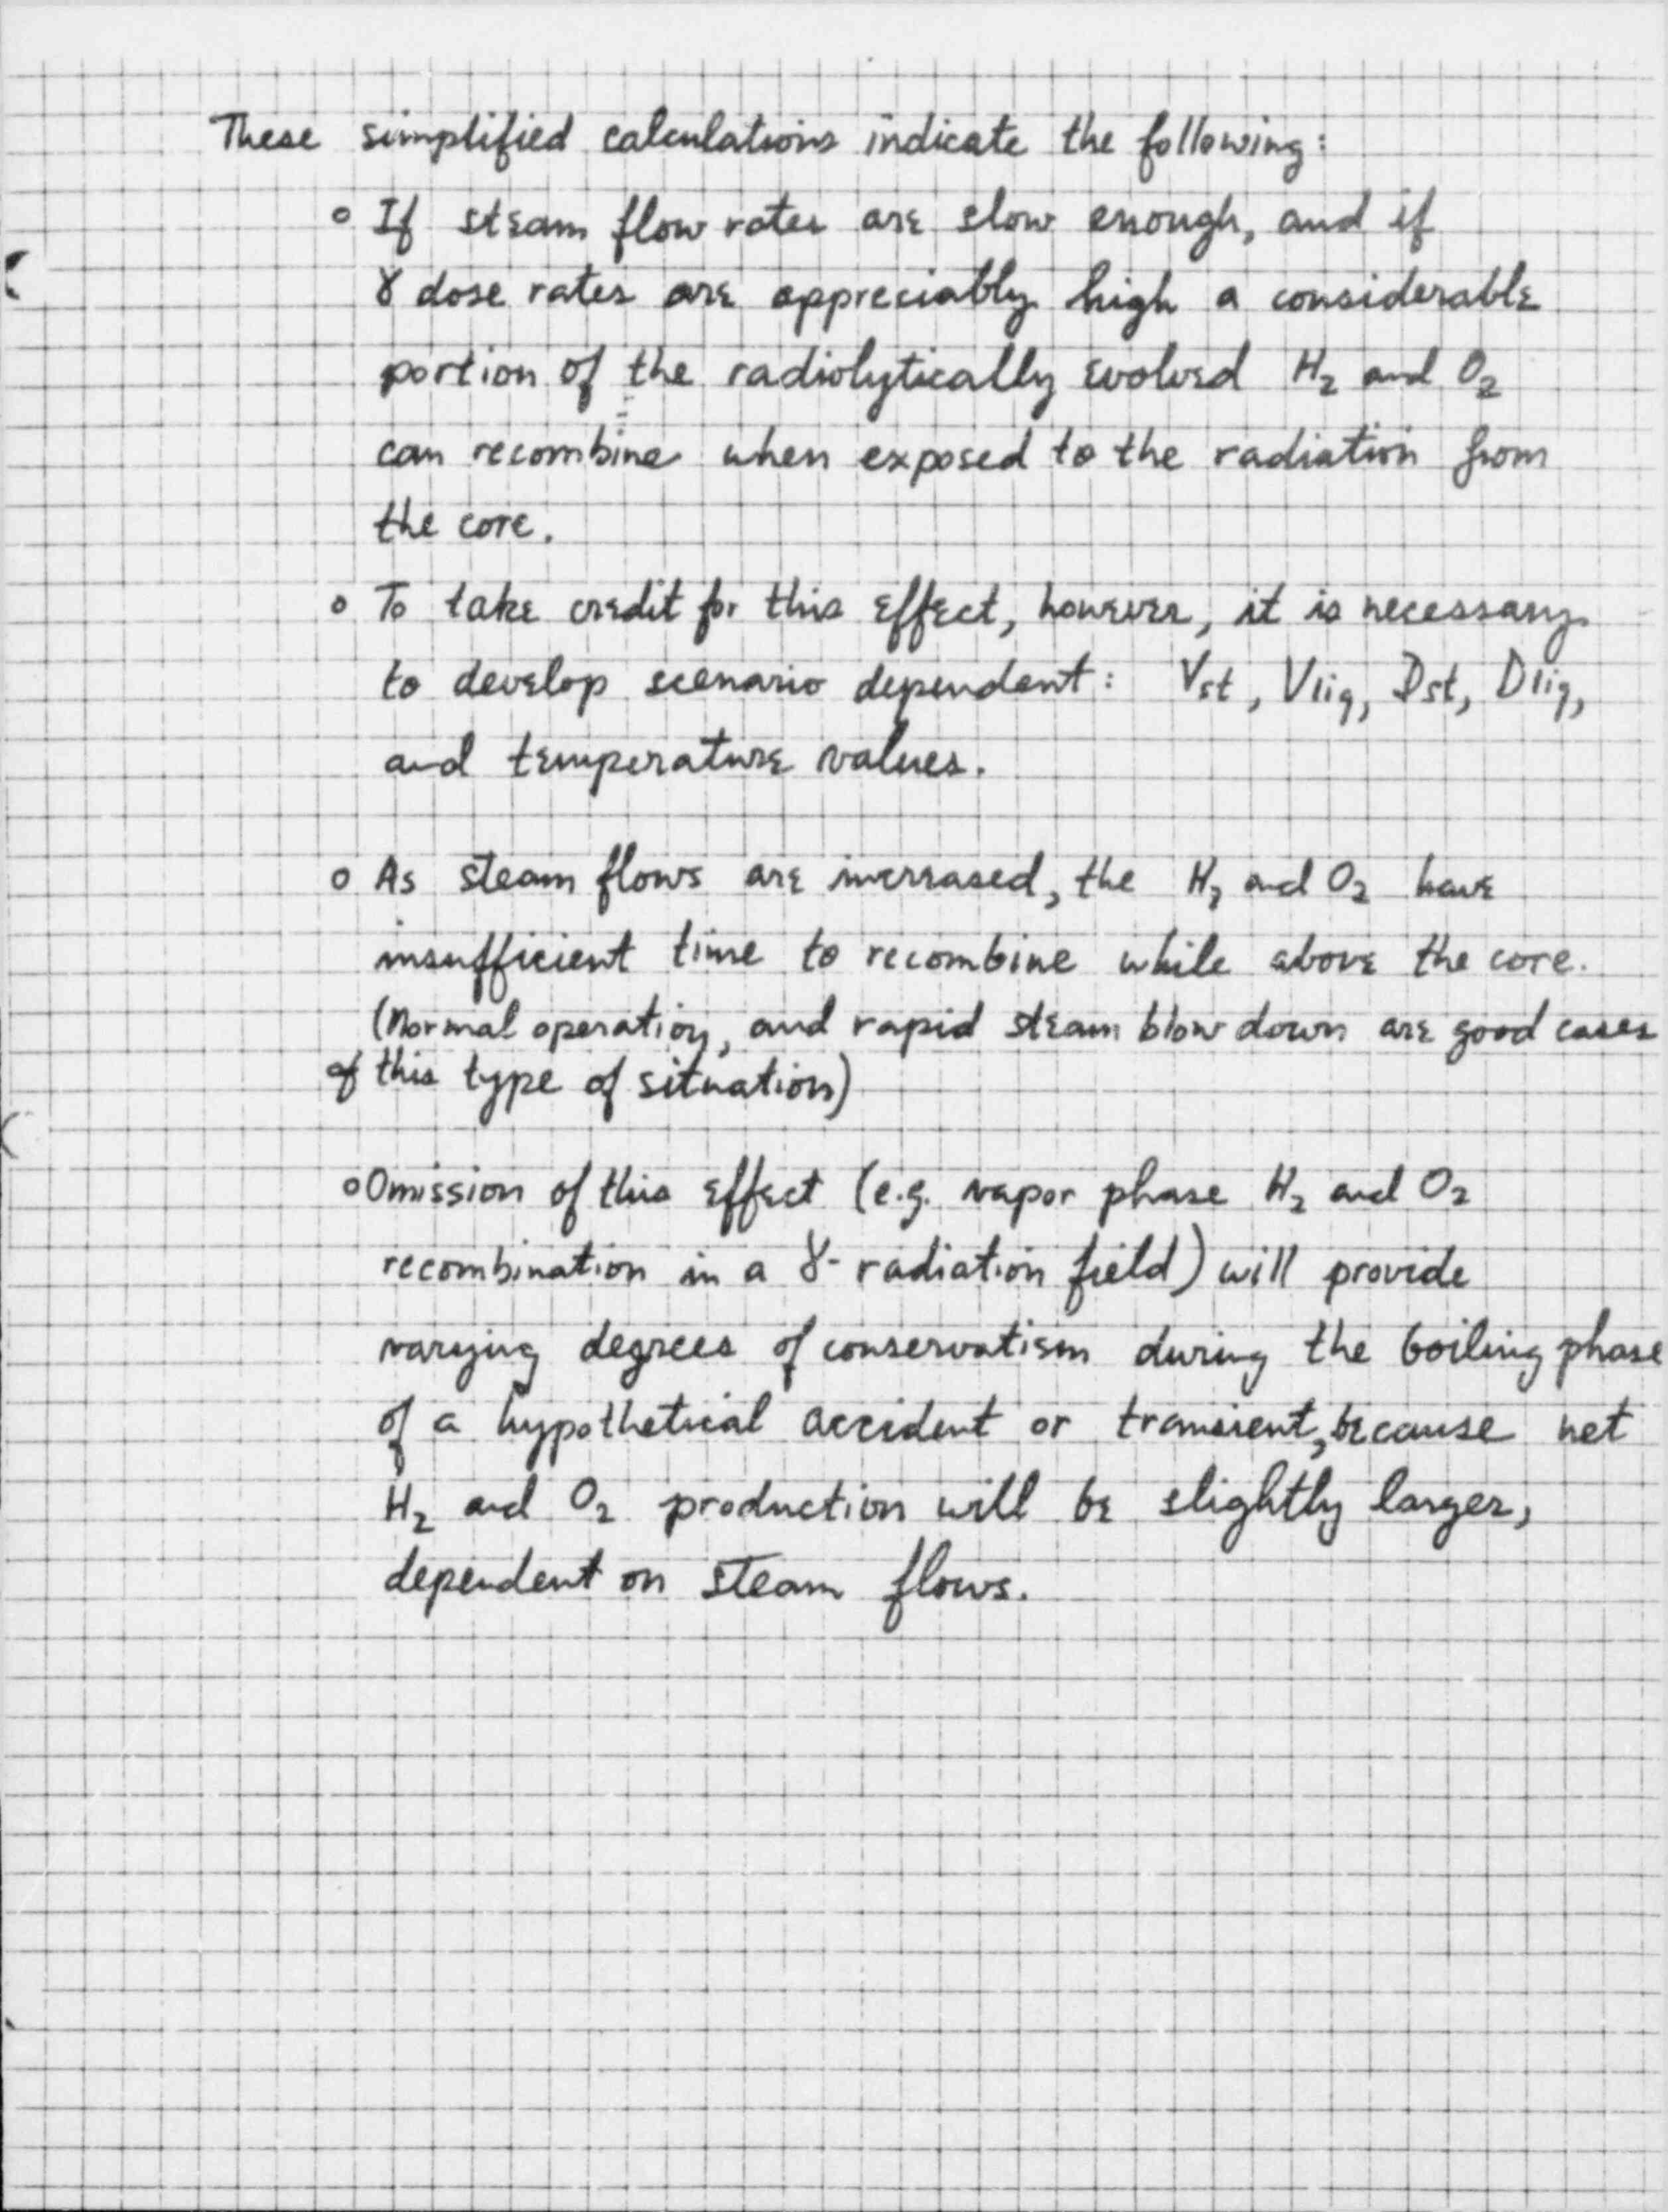 These simplified calculations indicate the following:
o If steam flow rates are slow enough, and if
γ dose rates are appreciably high a considerable
portion of the radiolytically evolved H₂ and O₂
can recombine when exposed to the radiation from
the core.
o To take credit for this effect, however, it is necessary
to develop scenario dependent: Vst, Vliq, Dst, Dliq,
and temperature values.
o As steam flows are increased, the H₂ and O₂ have
insufficient time to recombine while above the core.
(Normal operation, and rapid steam blow down are good cases
of this type of situation)
o Omission of this effect (e.g. vapor phase H₂ and O₂
recombination in a γ- radiation field) will provide
varying degrees of conservatism during the boiling phase
of a hypothetical accident or transient, because net
H₂ and O₂ production will be slightly larger,
dependent on steam flows.